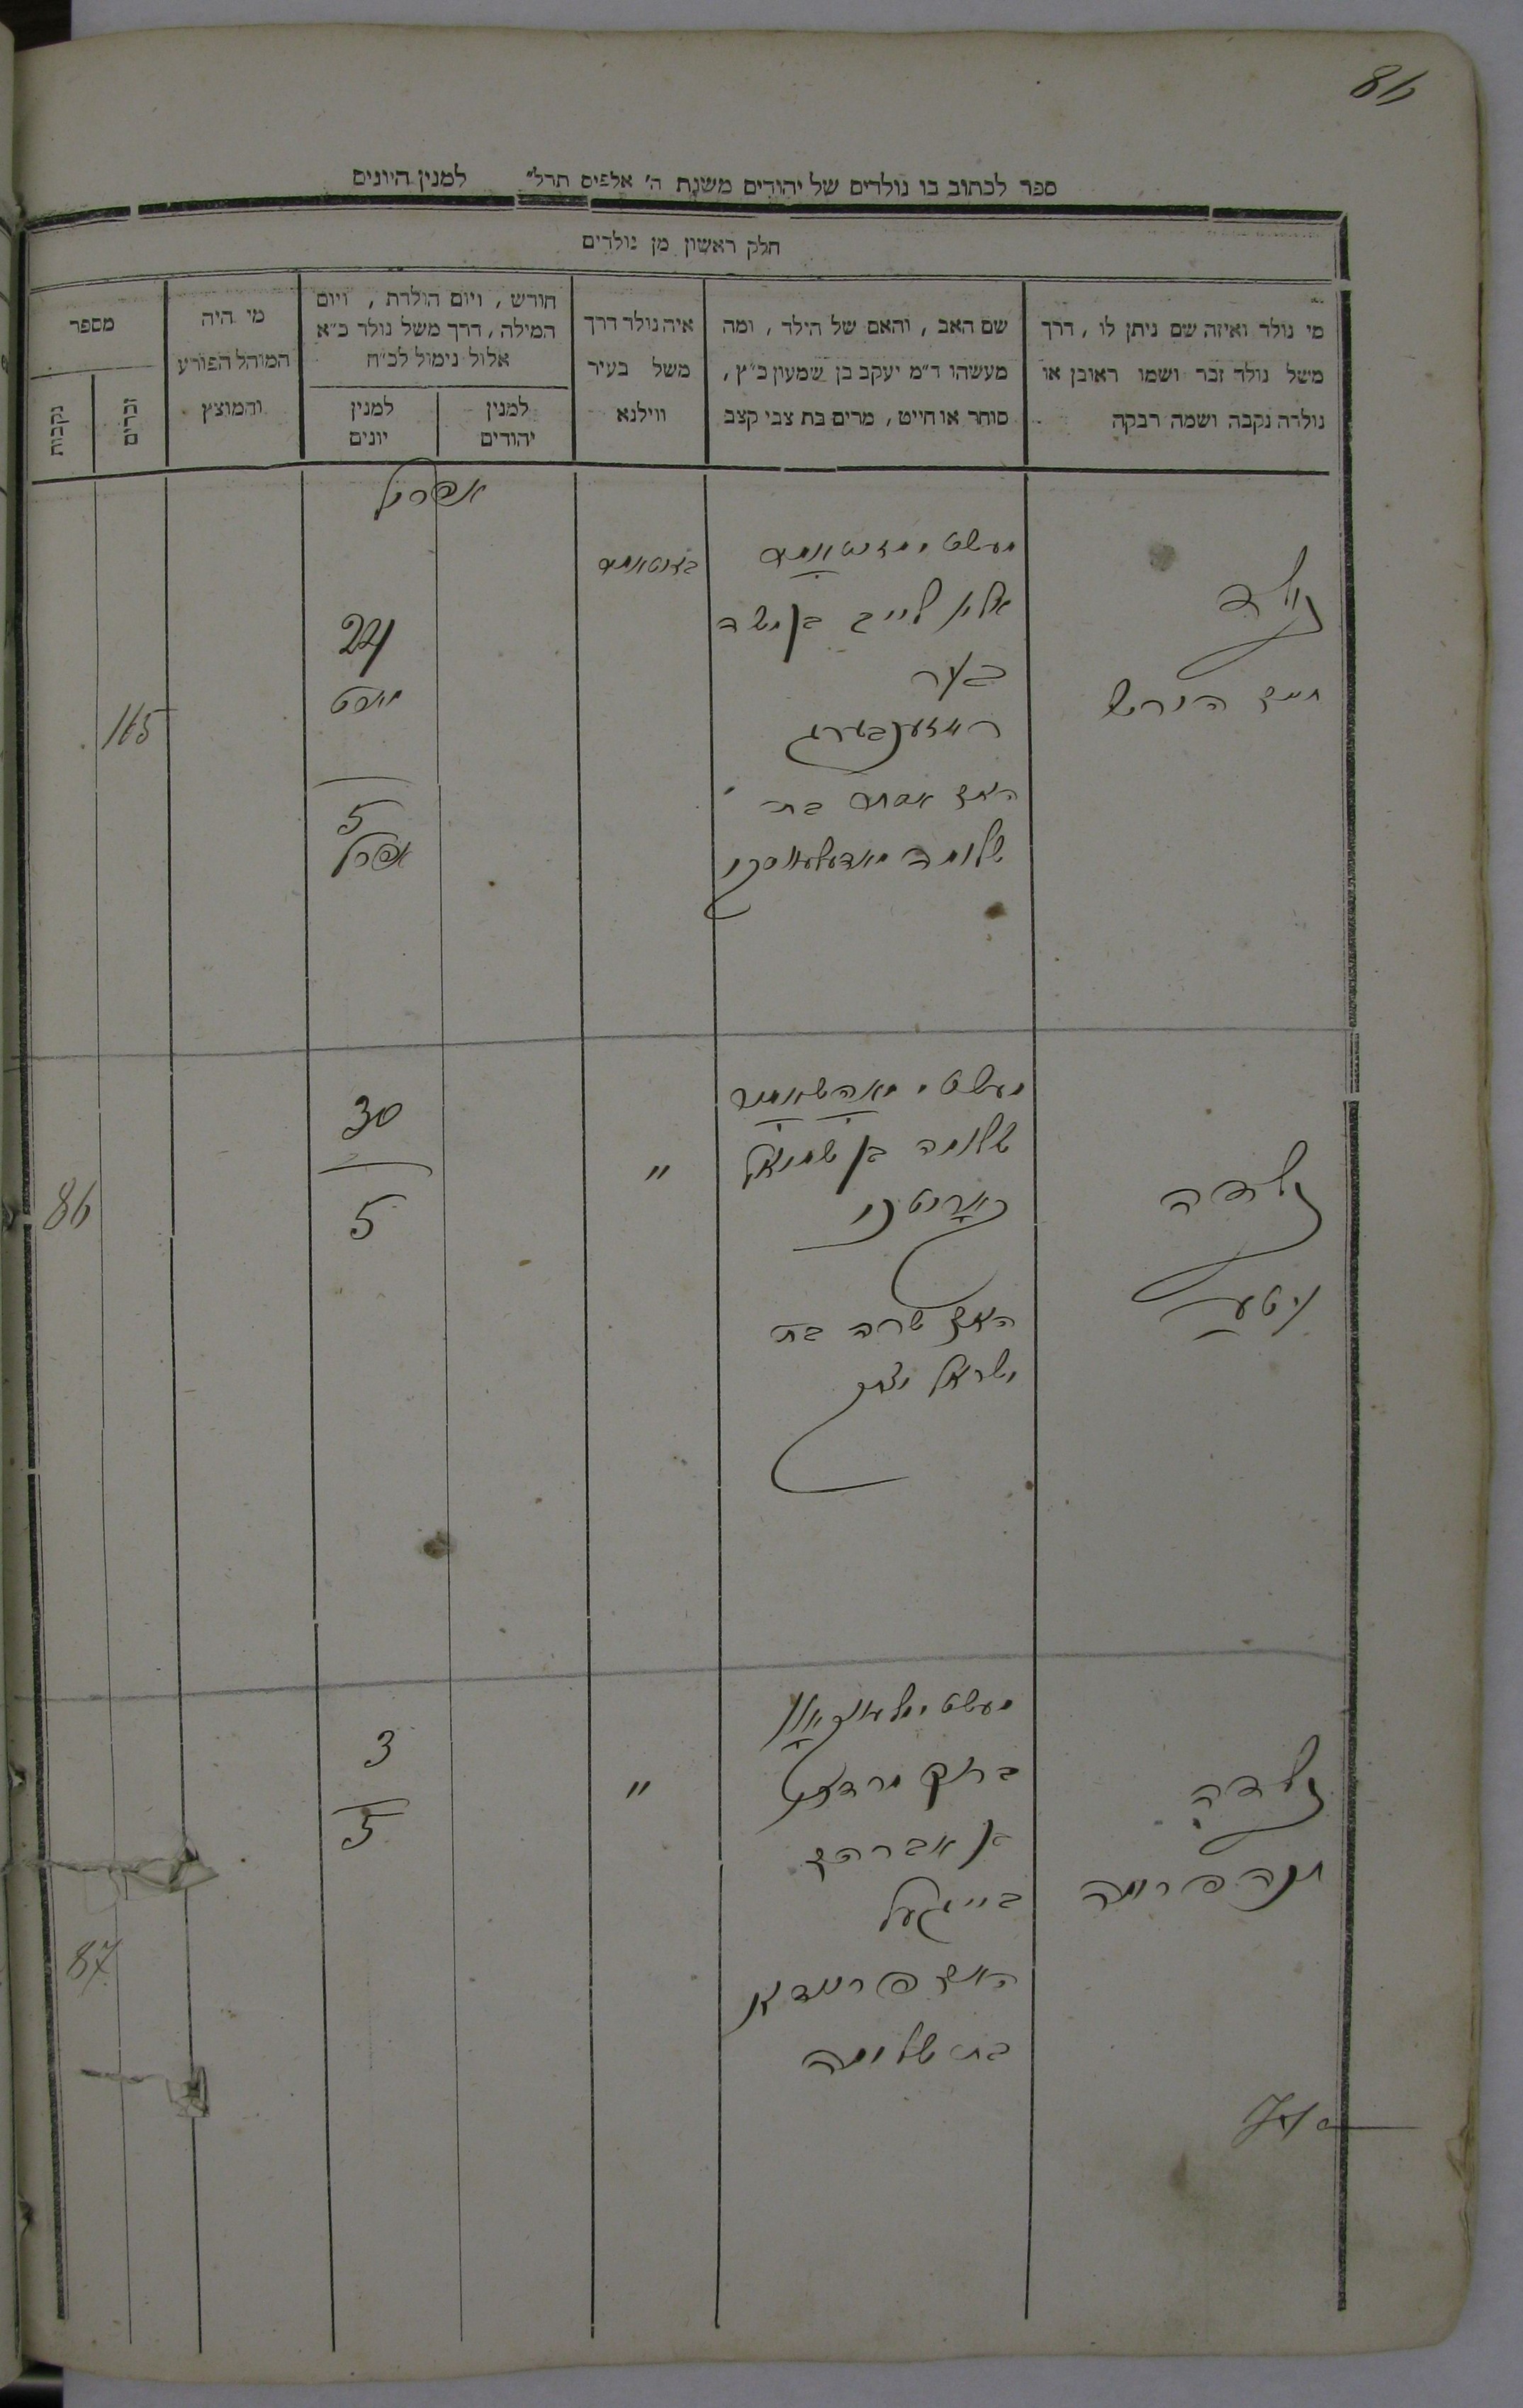 86
ספר לכתוב בו נולדים של יהודים משנת ה' אלפים תרל" למנין היונים
חלק ראשון מן נולדים
מי נולד ואיזה שם ניתן לו, דרך
משל נולד זכר ושמו ראובן או
נולדה נקבה ושמה רבקה
שם האב, והאם של הילד, ומה
מעשהו ד"מ יעקב בן שמעון כ"ץ,
סוחר או חייט, מרים בת צבי קצב
איה נולד דרך
משל בעיר
ווילנא
חודש, ויום הולדת, ויום
המילה, דרך משל נולד כ"א
אלול נימול לכ"ח
למנין
יהודים
למנין
יונים
מי היה
המוהל הפורע
והמוצץ
מספר
זכרים
נקבות
אפריל
נולד
חיים הירש
מעשט
אליו לייב בן משה
בער
ראזענבערג
האם אסתר בת
שלומה
מארט
5
אפריל
115
נולדה
יטע
מעשט
שלומה בן שמואל
האם שרה בת
ישראל יצחק
"
30
5
86
נולדה
חנה פרומה
מעשט
ברוך מרדכי
בן אברהם
בייגעל
האם פריידא
בת שלומה
"
3
5
87